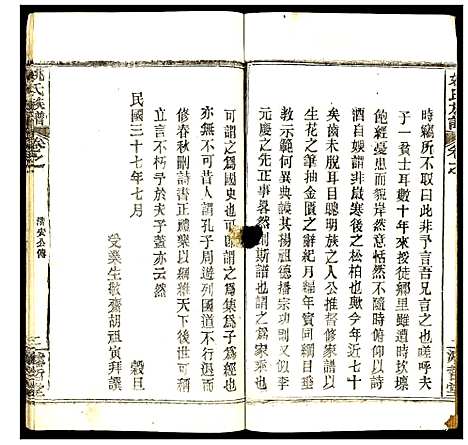 時竊所曰此非予言吾兄言之也嗟呼夫
子一貧士耳數十年來授徒鄉里雖遭時坎壈
飽經憂患而貌岸然意恬然不隨時俯仰以詩
酒自娛謂非歲寒後之松柏也歟今年近七十
矣齒未脫耳目聰明族之人公推督修家譜以
生花之筆抽金匱之辭紀月編年寶同綱目垂
教示範何異典謨其揚祖德播宗功則一以李
元慶之先正事畧然則斯譜也謂之為家乘也
可謂之為國史也可謂之為集為子為經也
亦無不可天可哀人謂孔子周遊列國道不行退而
修春秋刪詩書正禮樂以綱維天下後世可稱
立言不朽予於夫子蓋亦云然
民國三十七年七月　穀旦
受業生敬齋胡祖寅拜譔
姚氏族譜
卷之一
清安公傳
二